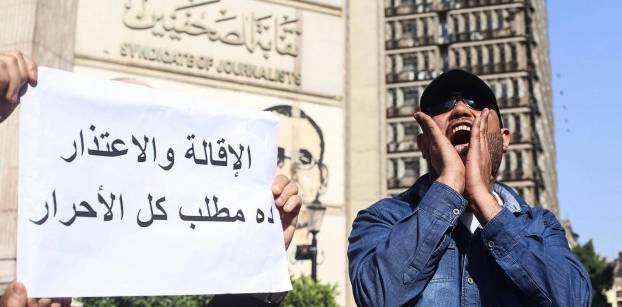 نقابة الصحفيين
SYNDICATE OF JOURNALISTS
الإقالة والاعتذار
ده مطلب كل الأحرار